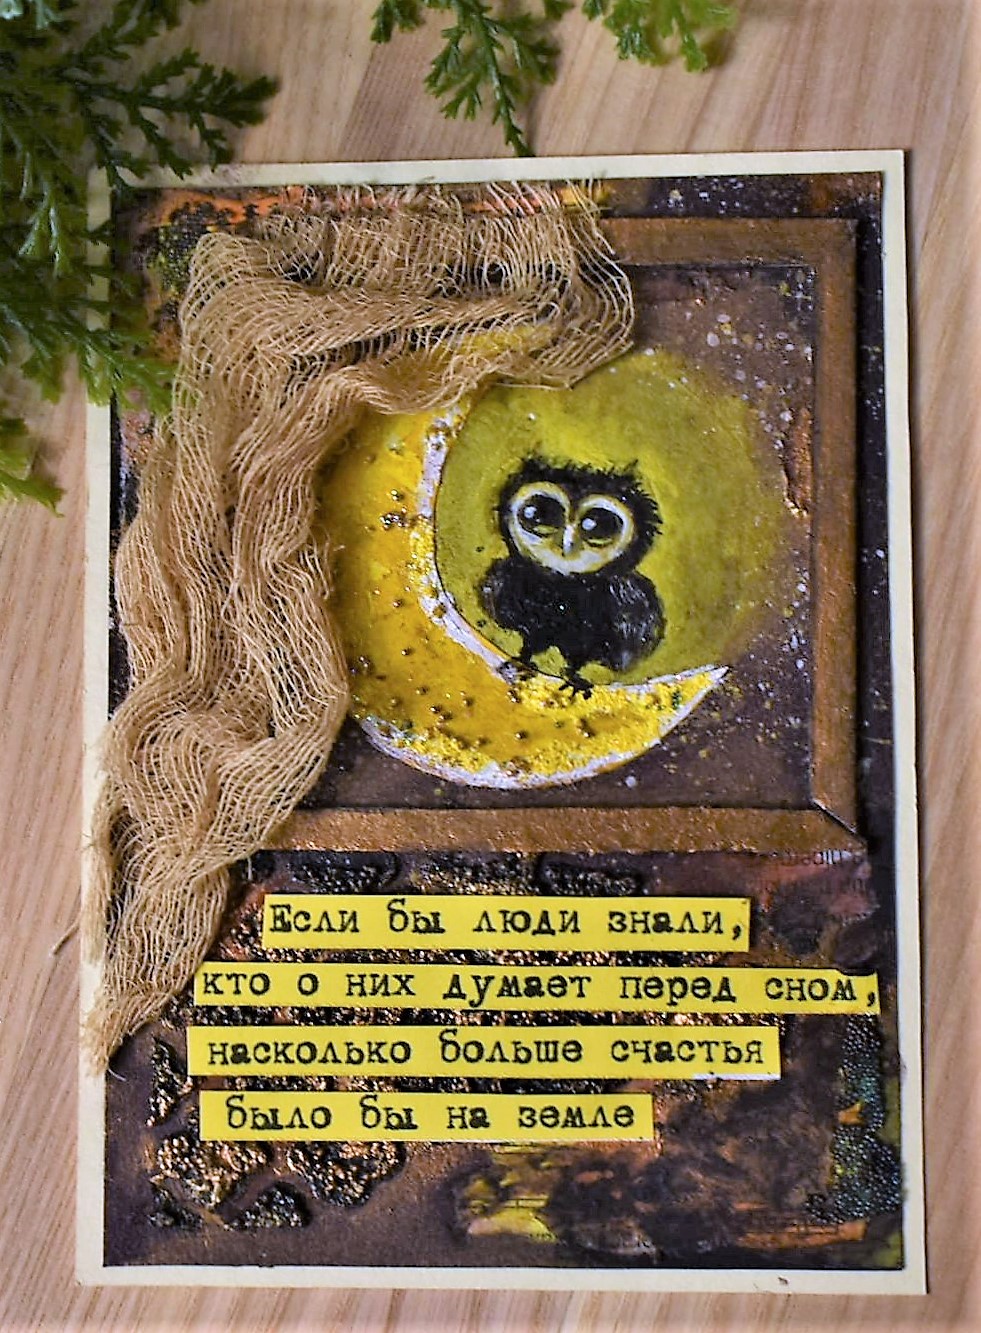 Если бы люди знали,
кто о них думает перед сном,
насколько больше счастья
было бы на земле